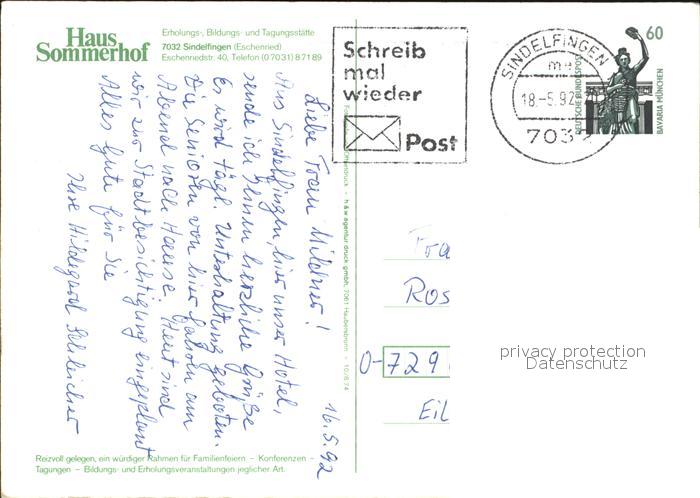 Haus
Sommerhof
Erholungs-, Bildungs- und Tagungsstätte
7032 Sindelfingen (Eschenried)
Eschenriedstr. 40, Telefon (07031) 87189
Schreib
mal
wieder
Post
SINDELFINGEN
18.-5.92
703
60
DEUTSCHE BUNDESPOST
BAVARIA MÜNCHEN
16.5.92
Liebe Frau Mildner!
Aus Sindelfingen, hier unser Hotel,
sende ich Ihnen herzliche Grüße
Es wird tägl. Unterhaltung geboten.
Die Senioren von hier fahren am
Abend nach Hause. Heut sind
wir zur Stadtbesichtigung eingeplant
Alles Gute für Sie
Ihre Hildegard Schleicher
h & w agentur druck gmbh, 7061 Haubersbronn - 10/874
Fra
Ros
O-729
Eil
privacy protection
Datenschutz
Reizvoll gelegen, ein würdiger Rahmen für Familienfeiern – Konferenzen –
Tagungen – Bildungs- und Erholungsveranstaltungen jeglicher Art.